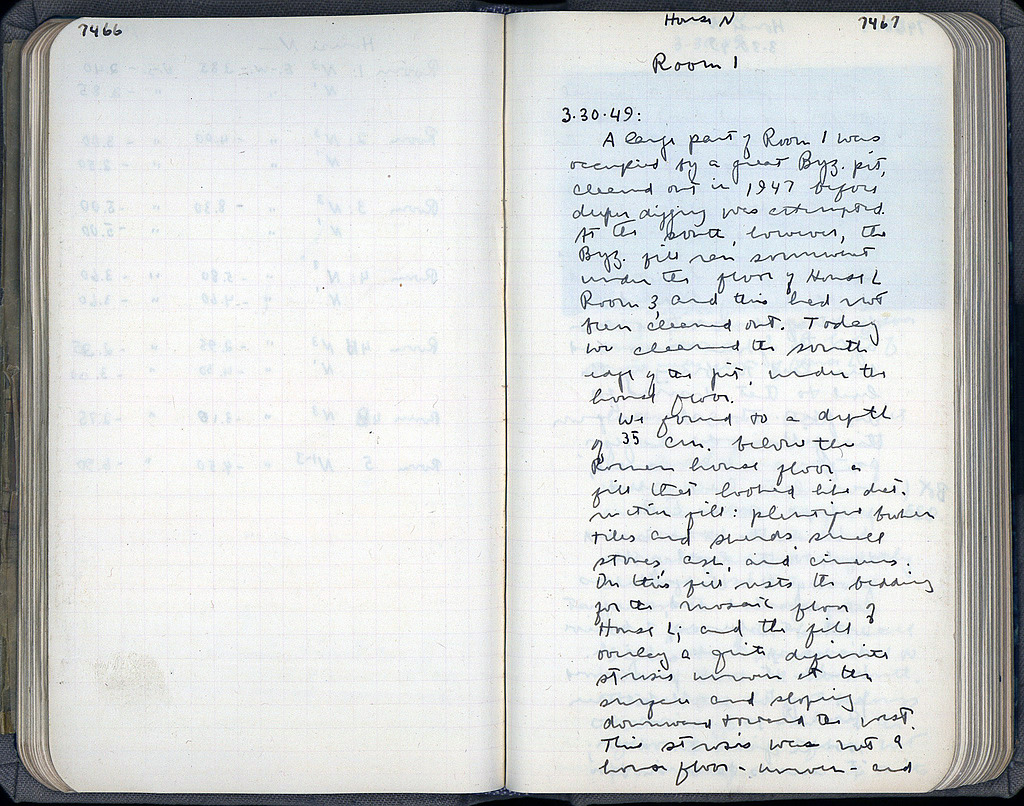 7466
House N
7467
Room 1
3.30.49:
A large part of Room 1 was
occupied by a great Byz. pit,
cleaned out in 1947 before
deeper digging was attempted.
At the south, however, the
Byz. fill ran somewhat
under the floor of House L
Room 3, and this had not
been cleaned out. Today
we cleaned the south
edge of the pit, under the
house floor.
We found to a depth
of 35 cm. below the
Roman house floor a
fill that looked like dest-
ruction fill: plentiful broken
tiles and sherds, small
stones, ash, and cinders.
On this fill rests the bedding
for the mosaic floor of
House L; and the fill
overlay a quite definite
strosis uneven at the
surface and sloping
downward toward the west.
This strosis was not a
house floor - uneven - and